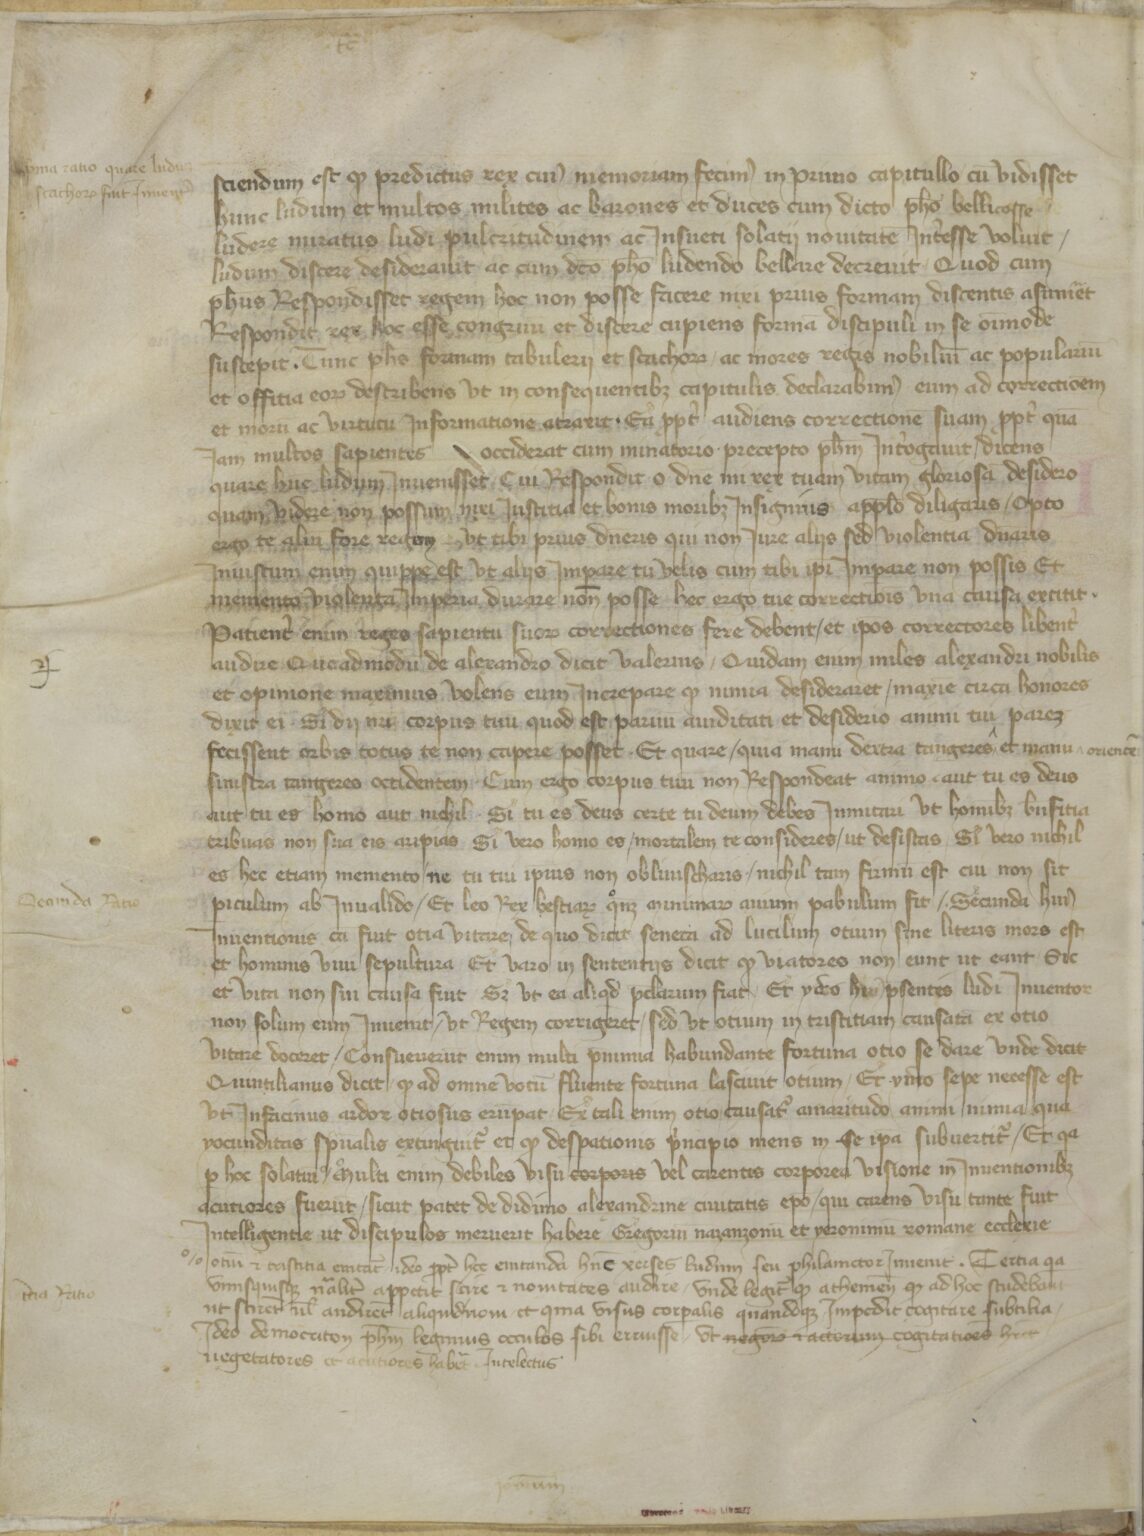 prima ratio quare ludus
scachorum fuit Inventus
sciendum est qp predictus rex cuiꝰ memoriam fecimꝰ in primo capitullo cū vidisset
hunc ludum et multos milites ac barones et duces cum dicto pho bellicosse
ludere miratus ludi pulcritudinem ac Insueti solatij novitatē Interesse voluit /
ludum discere desideravit ac cum dco pho ludendo bellare decrevit . Quod cum
phus Respondisset regem hoc non posse facere nixi prius formam discentis asumet
Respondit rex hoc esse congruū et discere cupiens formā discipuli in se oimode
suscepit . Tunc phs formam tabulerij et scachor / ac mores regis nobiliū ac populariū
et offitia eor describens vt in consequentibz capitulis declarabimꝰ eum ad correctioem
et morū ac virtutū Informatione atraxit . Ea ppt audiens correctione suam ppt quā
Iam multos sapientes occiderat cum minatorio precepto phm Introgavit / dicens
quare huc ludum Invenisset . Cui Respondit o dne mi rex tuam vitam gloriosā desidero
quam videre non possum nixi Iustitia et bonis moribz Insignitus a pplo diligaris / Opto
ergo te aliū fore regem vt tibi prius dneris qui non Iure aliis sed violentia dnaris
Iniustum enim quippe est vt aliis Impare tu velis cum tibi ipi Impare non possis Et
memento violenta Imperia durare non posse hec ergo tue correctiois una causa extitit .
Patientr enim reges sapientū suor correctiones fere debent / et ipos correctores libentr
audire Queadmodū de alexandro dicit valerius / Quidam enim miles alexandri nobilis
et opinione maximus volens eum Increpare qp nimia desideraret / maxie circa honores
dixit ei Si dij nri corpus tuū quod est parvū aviditati et desiderio animi tui parez
fecissent orbis totus te non capere posset . Et quare / quia manu dextra tangeres ^ et manu ^ oriente
sinistra tangeres occidentem . Cum ergo corpus tuū non Respondeat animo aut tu es deus
aut tu es homo aut nichil . Si tu es deus certe tu deum debes Inmitari vt homibz bnfitia
tribuas non sua eis aripias Si vero homo es / mortalem te consideres / ut desistas Si vero nichil
es hec etiam memento ne tu tui ipius non oblivischaris / nichil tam firmū est cui non sit
piculum ab Invalido / Et leo Rex bestiar qnqz minimar avium pabulum fit /. Secunda huiꝰ
Secunda Ratio
Inventionis cā fuit otia vitare de quo dicit seneca ad lucilium otium sine literis mors est
et hominis vivi sepultura Et varo in sententijs dicit qp viatores non eunt ut eant Sic
et vita non sui causa fiut . Sz vt ea aliqd pclarum fiat . Et ydeo psentis ludi Inventor
non solum eum Invenit / vt Regem corrigeret / sed vt otium in tristitiam causatā ex otio
vitare doceret / Consueverūt enim multi pnimia habundante fortuna otio se dare unde dicit
Quintilianus dicit qp ad omne votū fluente fortuna lascivit otium . Et ymo sepe necesse est
vt Infacinus ardor otiosus erumpat . Ex tali enim otio causatr amaritudo animi nimia qua
yocunditas spualis extinguitr et qp despationis principio mens in se ipa subvertitr / Et qa
p hoc solatiū / Multi enim debiles visu corporis vel carentis corporea visione in Inventionibz
acutiores fuerūt / sicut patet de didimo alexandrine civitatis epo / qui carens visu tante fuit
Intelligentie ut discipulos meruerit habere Gregoriū nazanzonū et yeronimū romane ecclexie
otiū z tristitia evitat ideo ppt hoc evitanda hūc xerses ludum seu philametor Invenit . Tertia qa
tertia Ratio
unusquisqz nalitr appetit scire z novitates audire / Unde legitr qp athemen qp ad hoc studebant
ut scirēt vl audiret aliquidnovi et quia visus corpalis quandoqz Impedit cogitare subtilia /
Ideo democriton phm legimus occulos sibi erruisse / vt cogitatioes
vegetatores et acutiores habet Intelectus